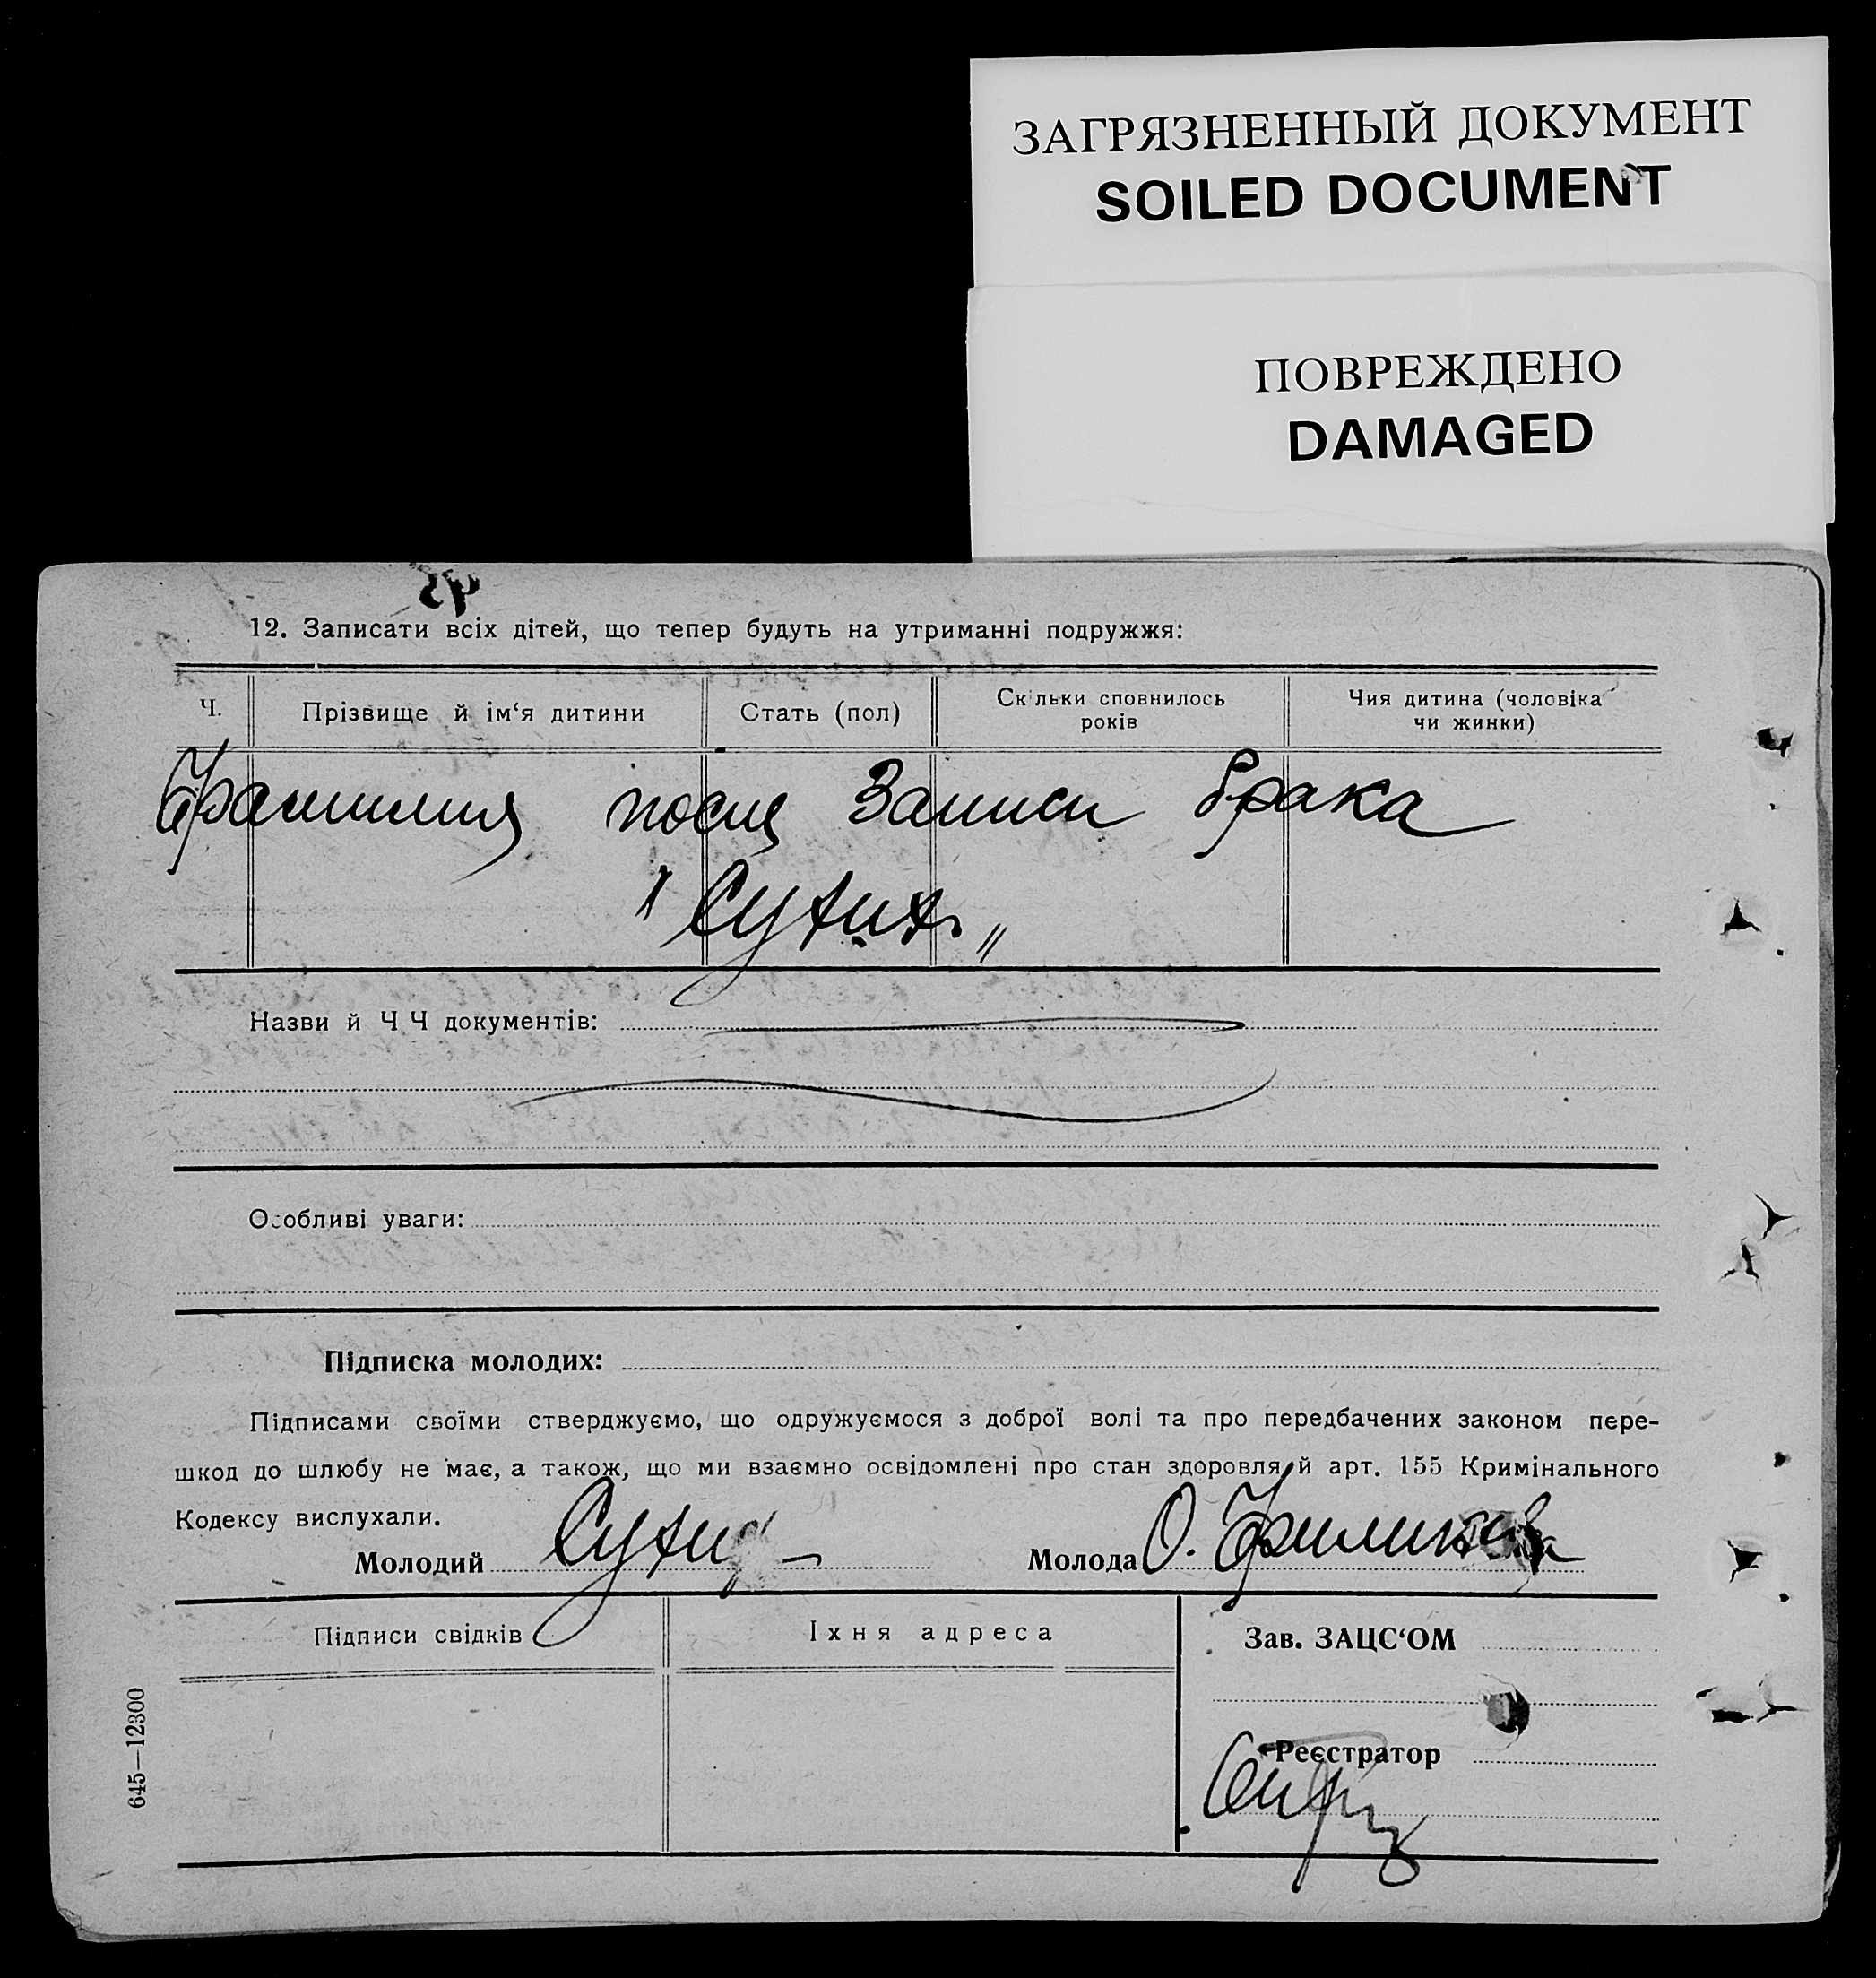 ЗАГРЯЗНЕННЫЙ ДОКУМЕНТ
SOILED DOCUMENT
ПОВРЕЖДЕНО
DAMAGED
12. Записати всіх дітей, що тепер будуть на утриманні подружжя:
Ч. Прізвище й ім‘я дитини Стать (пол) Скільки сповнилось років Чия дитина (чоловіка чи жинки)
Фамилия после Записи брака
Назви й Ч Ч документів:
Особливі уваги:
Підписка молодих:
Підписами своїми стверджуємо, що одружуємося з доброї волі та про передбачених законом пере-
шкод до шлюбу не має, а також, що ми взаємно освідомлені про стан здоровля й арт. 155 Кримінального
Кодексу вислухали.
Молодий Молода О.
Підписи свідків Їхня адреса Зав. ЗАЦС‘ОМ
Реєстратор
645—12300